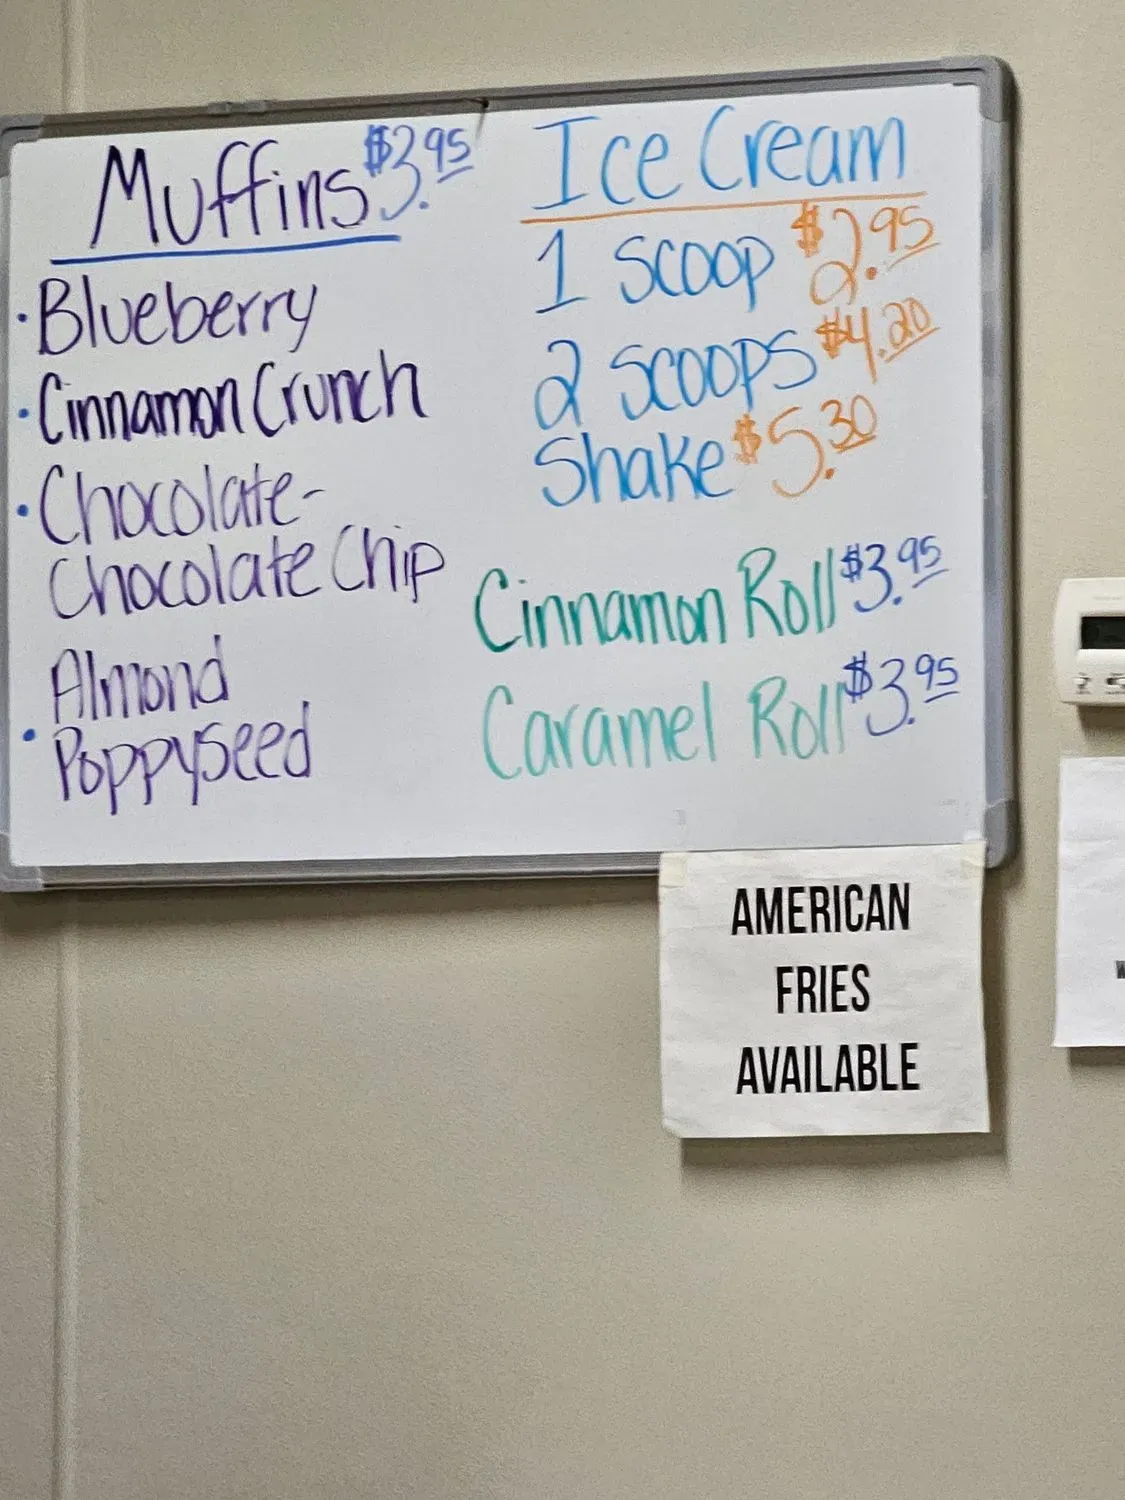 Muffins $3.95
· Blueberry
· Cinnamon Crunch
· Chocolate-
Chocolate Chip
Almond
· Poppyseed
Ice Cream
1 scoop $2.95
2 scoops $4.20
Shake $5.30
Cinnamon Roll $3.95
Caramel Roll $3.95
AMERICAN
FRIES
AVAILABLE